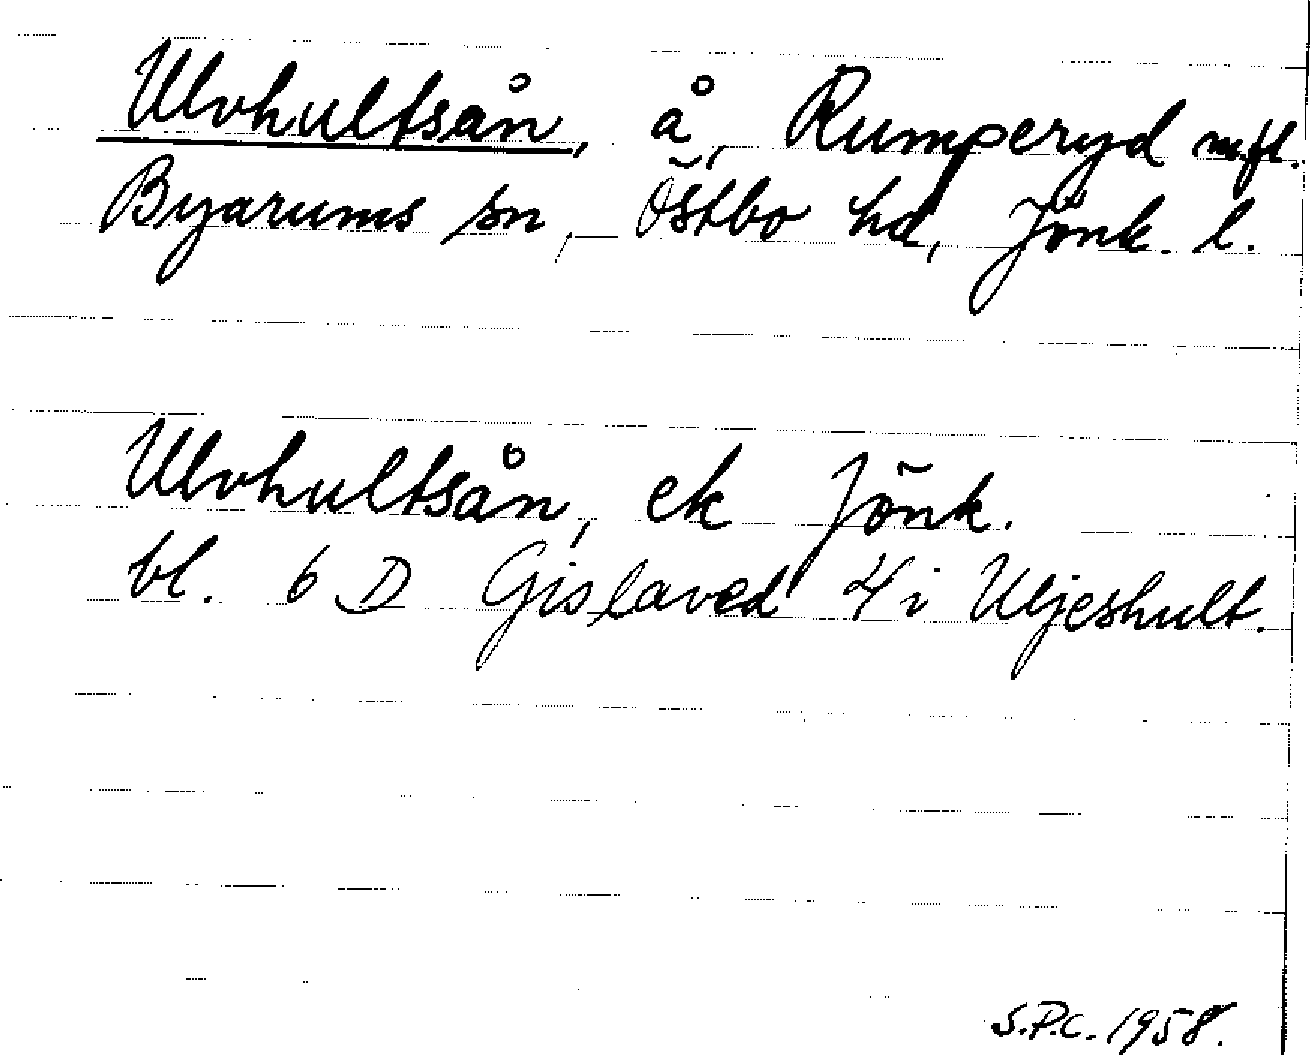 Ulvhultsån, å, Rumperyd m.fl.
Byarums sn, Östbo hd, Jönk. l.
Ulvhultsån, ek Jönk.
bl. 6 D Gislaved 4 i Uljeshult.
S.P.C. 1958.